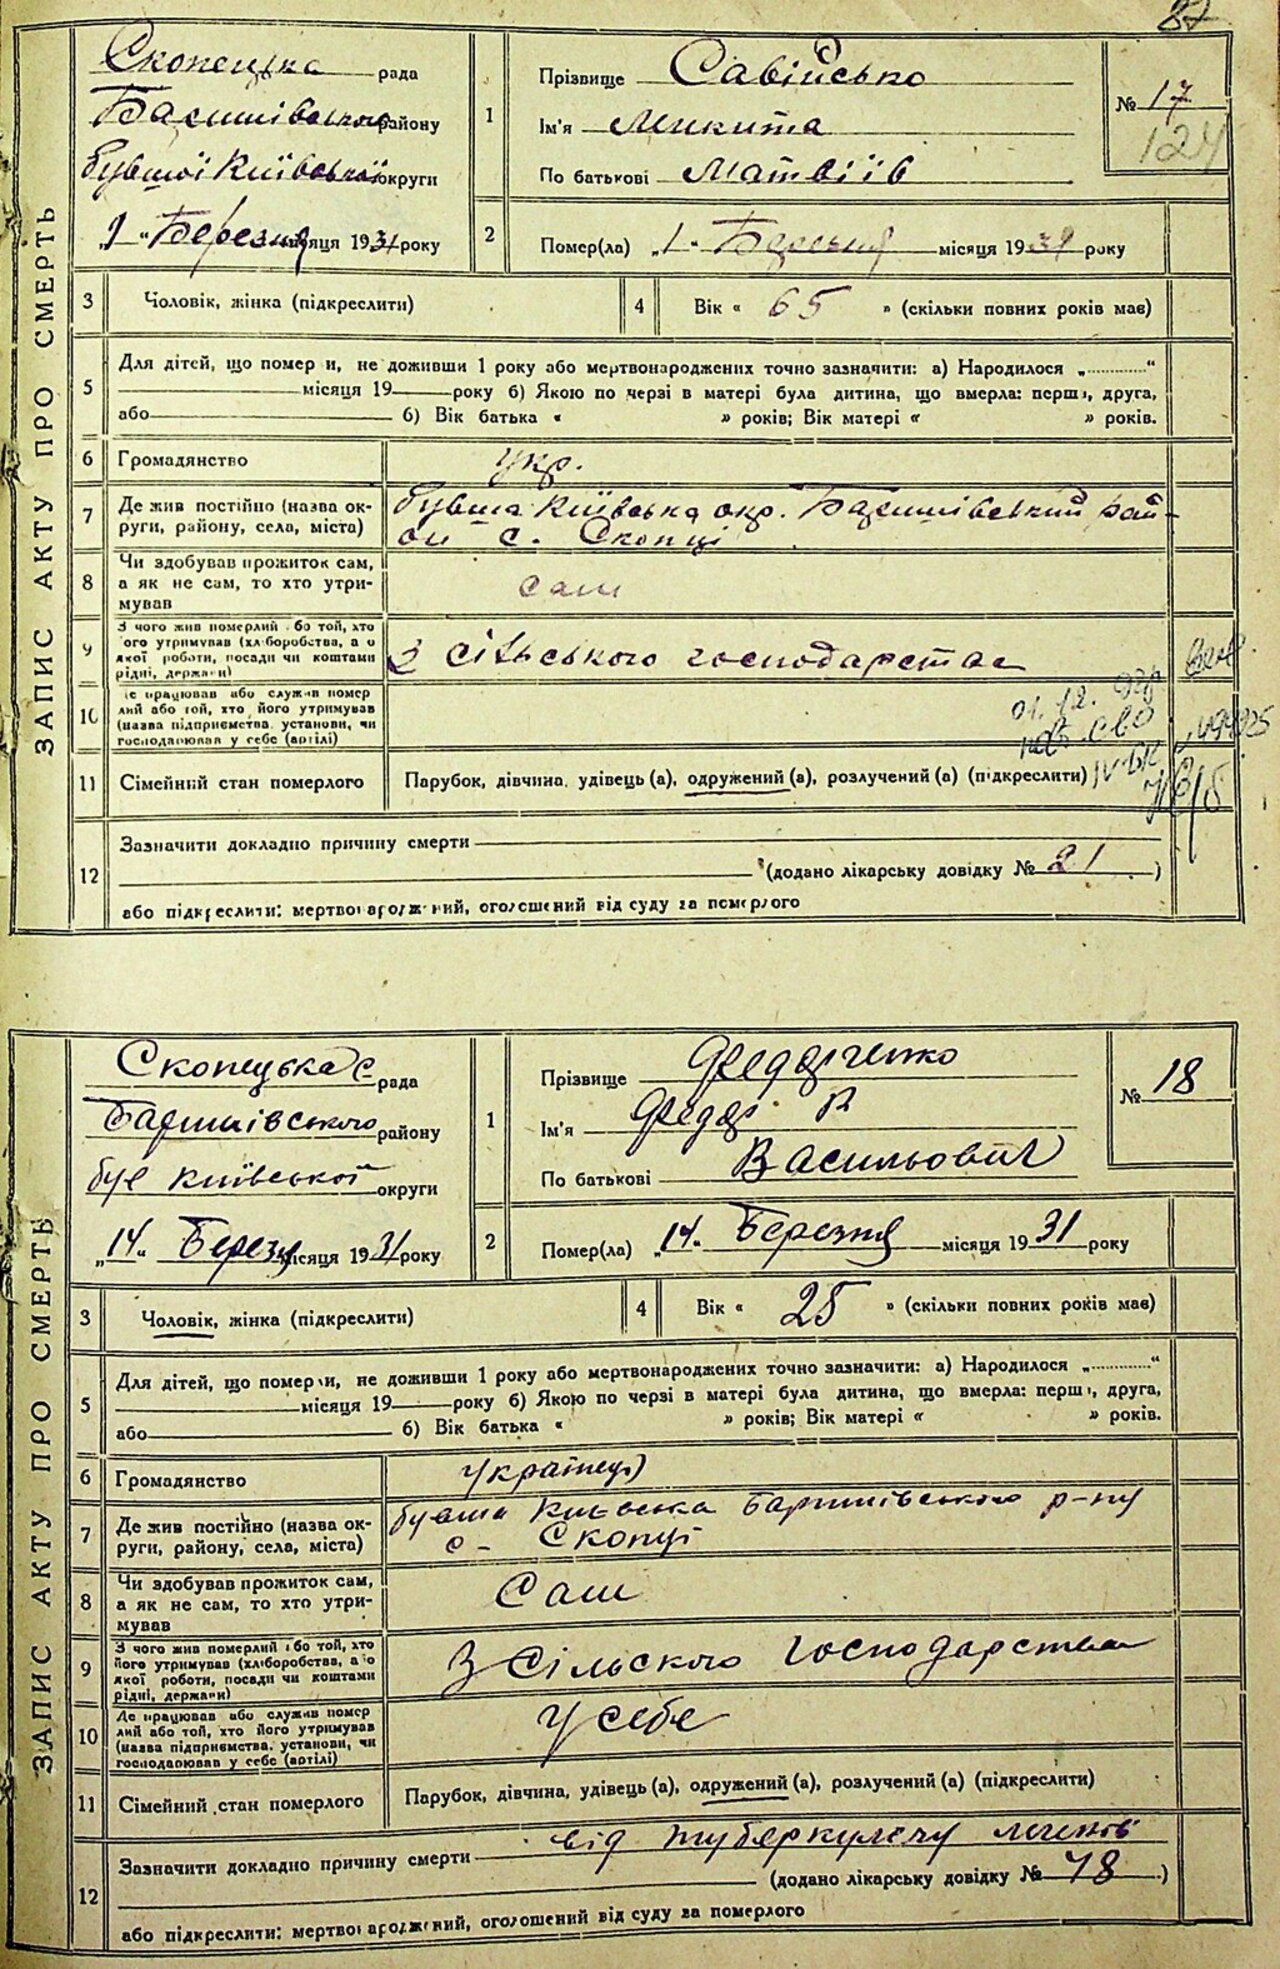 87
ЗАПИС АКТУ ПРО СМЕРТЬ
Скопецька рада
Баришівського району
бувшої Київської округи
"9" Березня місяця 1931 року
1
Прізвище Савійсько
Ім'я Микита
По батькові Матвіїв
№ 17
124
2
Помер(ла) "1" Березня місяця 1931 року
3 Чоловік, жінка (підкреслити)
4 Вік « 65 » (скільки повних років має)
5
Для дітей, що помер и, не доживши 1 року або мертвонароджених точно зазначити: а) Народилося „............“
місяця 19 року б) Якою по черзі в матері була дитина, що вмерла: перша, друга,
або б) Вік батька « » років; Вік матері « » років.
6 Громадянство укр.
7 Де жив постійно (назва ок-
руги, району, села, міста)
бувша Київська окр. Баришівський рай-
он с. Скопці
8 Чи здобував прожиток сам,
а як не сам, то хто утри-
мував
сам
9 З чого жив померлий або той, хто
його утримував (хліборобства, а о
якої роботи, посади чи коштами
рідні, держави)
З сільського господарства
10 Де працював або служив помер
лий або той, хто його утримував
(назва підприємства, установи, чи
господарював у себе (артілі)
11 Сімейний стан померлого Парубок, дівчина, удівець (а), одружений (а), розлучений (а) (підкреслити)
12 Зазначити докладно причину смерти
(додано лікарську довідку № 21)
або підкреслити: мертвонароджений, оголошений від суду за померлого
ЗАПИС АКТУ ПРО СМЕРТЬ
Скопецька с рада
Баришівського району
був Київської округи
"14" Березня місяця 1931 року
1
Прізвище Федорченко
Ім'я
По батькові Васильович
№ 18
2
Помер(ла) "14" Березня місяця 1931 року
3 Чоловік, жінка (підкреслити)
4 Вік « 25 » (скільки повних років має)
5
Для дітей, що померли, не доживши 1 року або мертвонароджених точно зазначити: а) Народилося „............“
місяця 19 року б) Якою по черзі в матері була дитина, що вмерла: перша, друга,
або б) Вік батька « » років; Вік матері « » років.
6 Громадянство українець
7 Де жив постійно (назва ок-
руги, району, села, міста)
бувша Київська Баришівського р-ну
с- Скопці
8 Чи здобував прожиток сам,
а як не сам, то хто утри-
мував
Сам
9 З чого жив померлий або той, хто
його утримував (хліборобства, а о
якої роботи, посади чи коштами
рідні, держави)
З Сільского господарства
10 Де працював або служив помер
лий або той, хто його утримував
(назва підприємства, установи, чи
господарював у себе (артілі)
У себе
11 Сімейний стан померлого Парубок, дівчина, удівець (а), одружений (а), розлучений (а) (підкреслити)
12 Зазначити докладно причину смерти від туберкулезу легенів
(додано лікарську довідку № 78)
або підкреслити: мертвонароджений, оголошений від суду за померлого